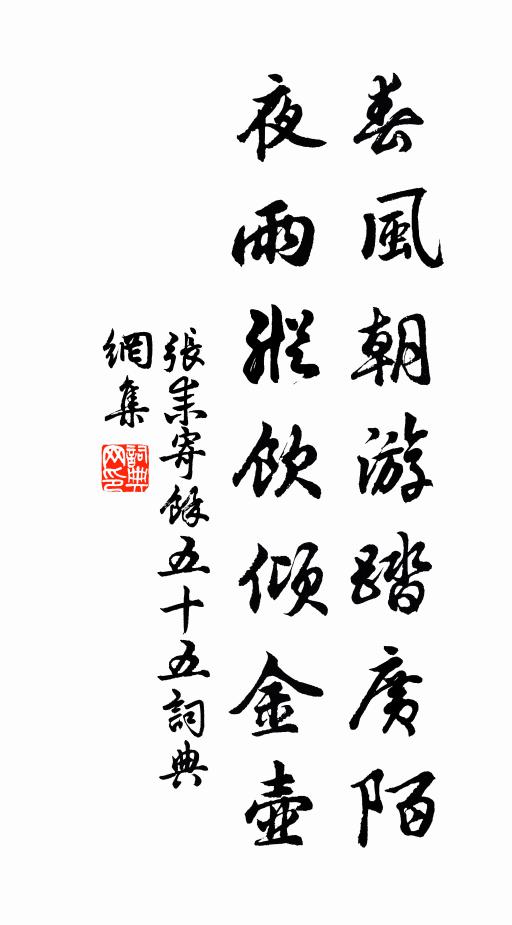 春風朝游踏廣陌
夜雨縱飲傾金壺
張耒寄餘五十五詞典
網集
詞典
网印